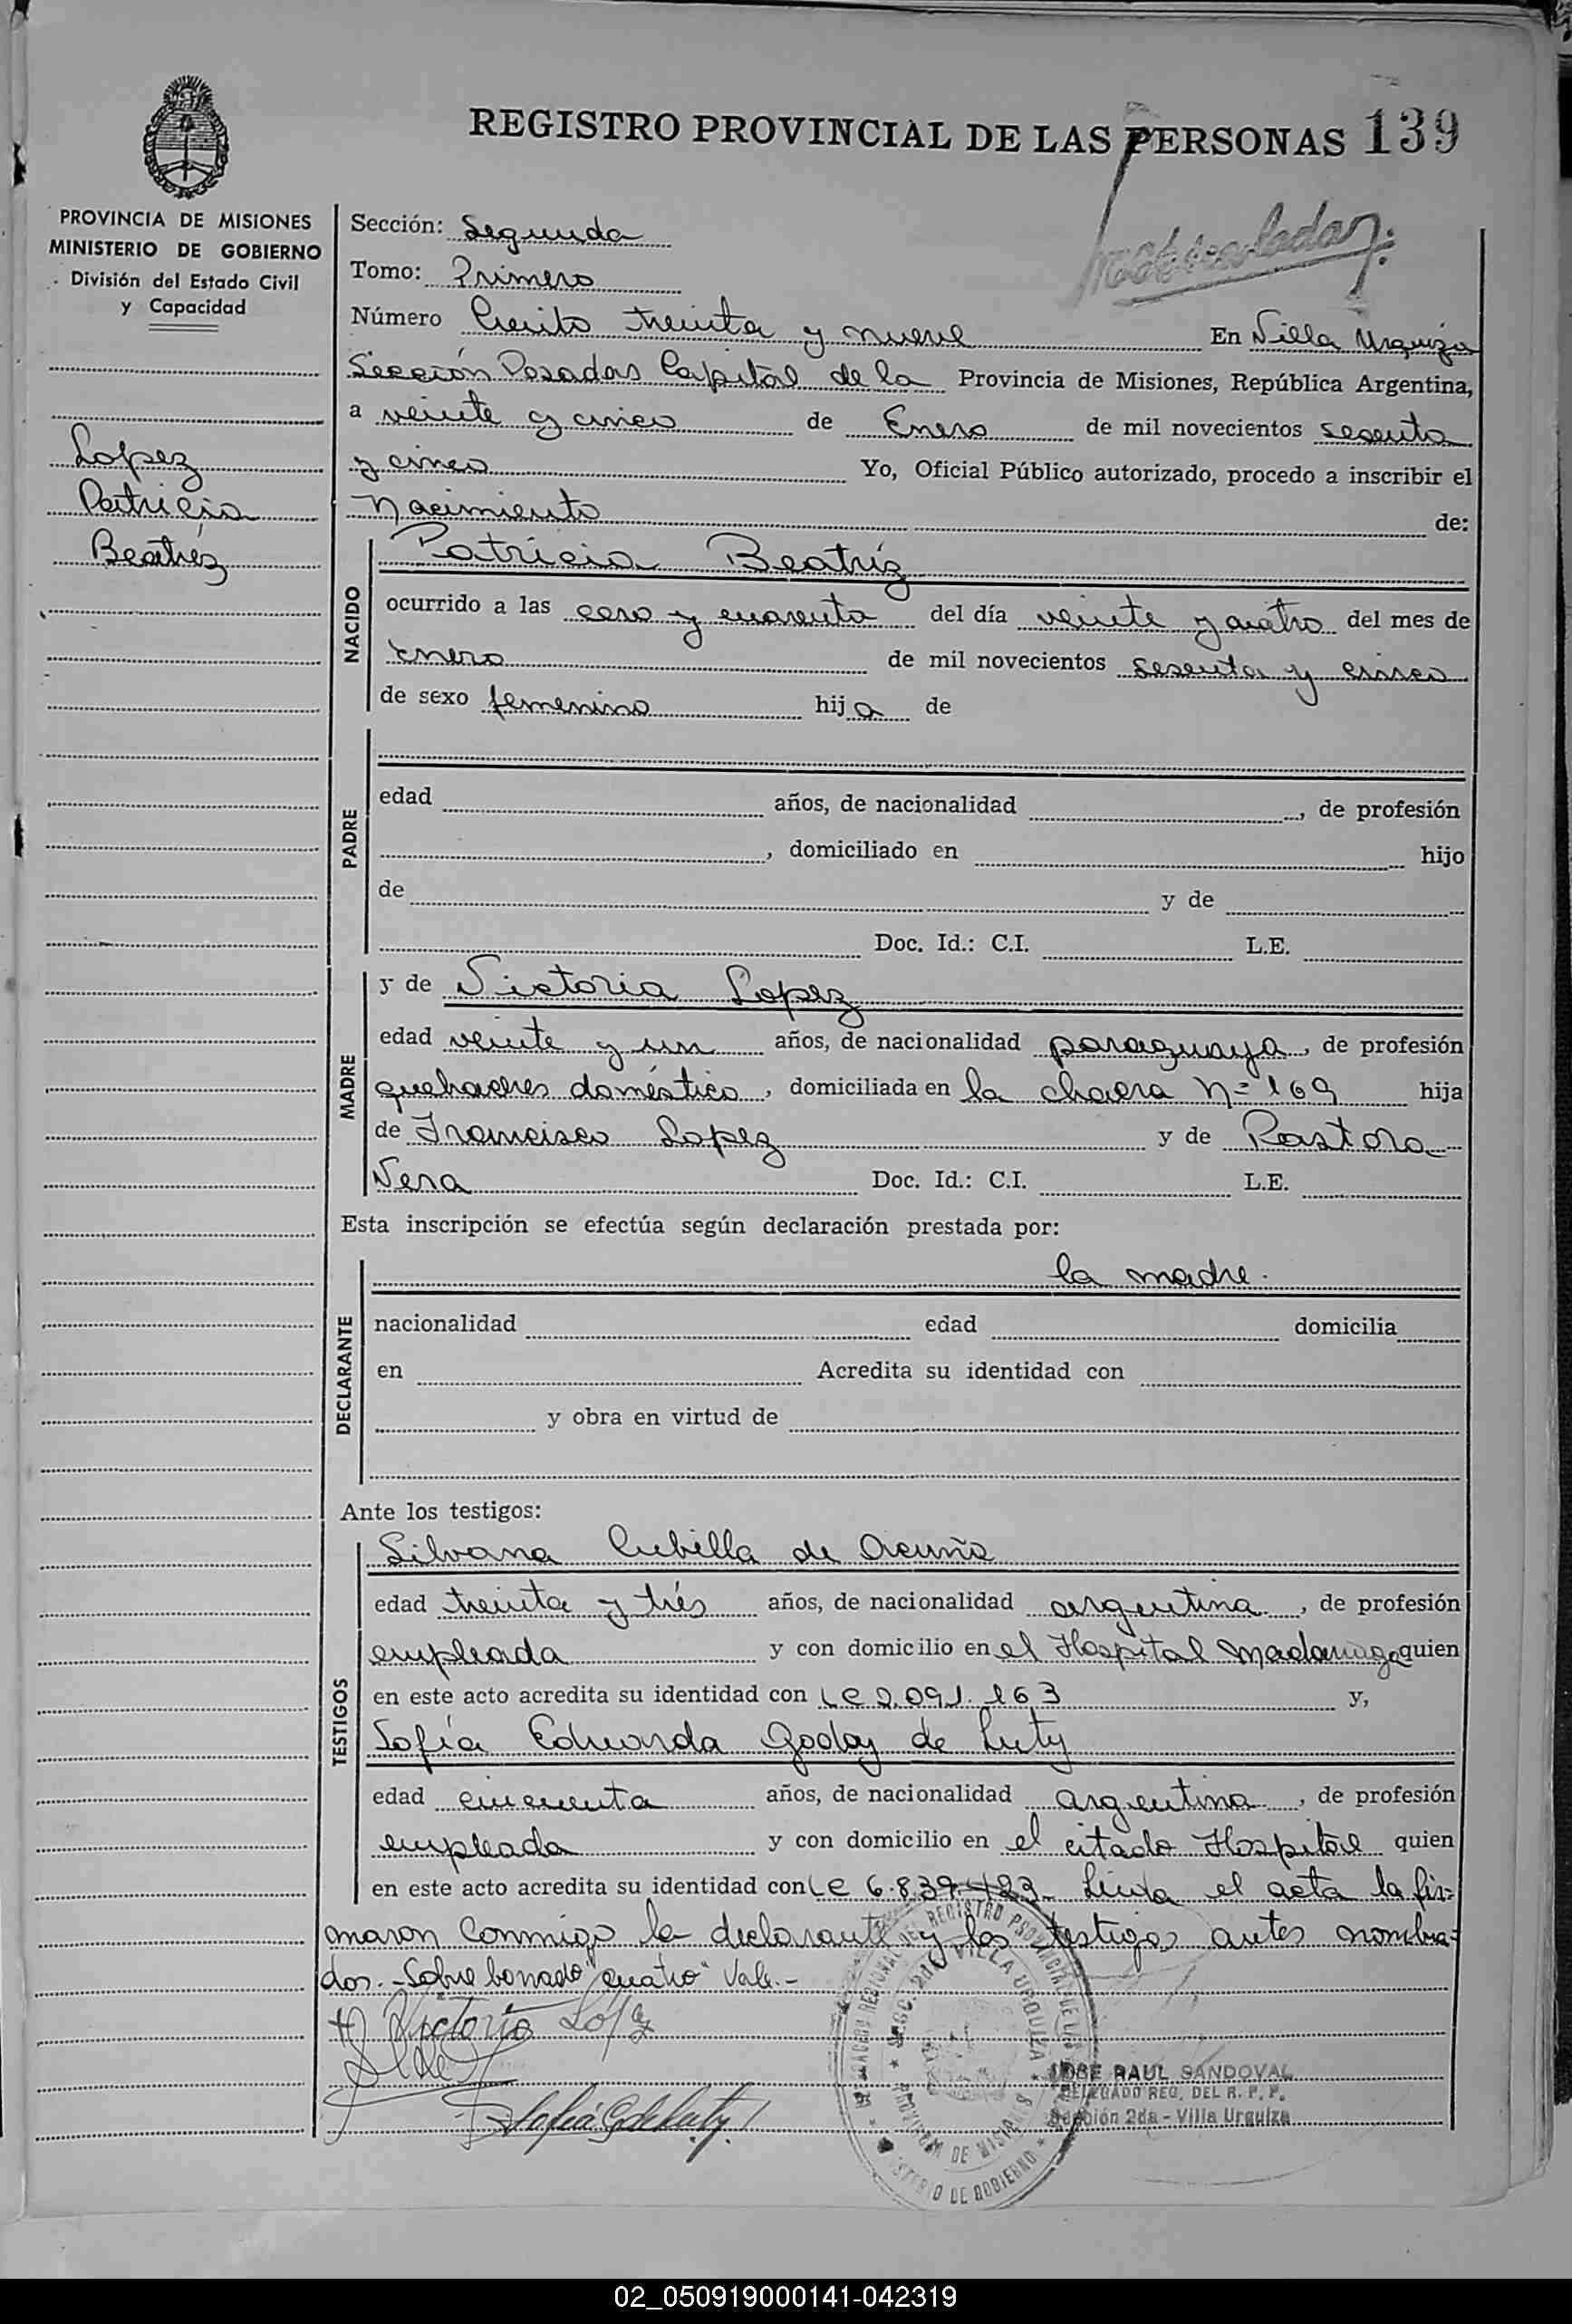 REGISTRO PROVINCIAL DE LAS PERSONAS 139
PROVINCIA DE MISIONES
MINISTERIO DE GOBIERNO
División del Estado Civil
y Capacidad
Lopez
Patricia
Beatríz
Sección: Segunda
Tomo: Primero
Matriculada
Número Ciento treinta y nueve En Villa Urquiza
Sección Posadas Capital de la Provincia de Misiones, República Argentina,
a veinte y cinco de Enero de mil novecientos sesenta
y cinco Yo, Oficial Público autorizado, procedo a inscribir el
Nacimiento de:
NACIDO
Patricia Beatríz
ocurrido a las cero y cuarenta del día veinte y cuatro del mes de
Enero de mil novecientos sesenta y cinco
de sexo femenino hija de
PADRE
edad años, de nacionalidad , de profesión
, domiciliado en hijo
de y de
Doc. Id.: C.I. L.E.
MADRE
y de Victoria Lopez
edad veinte y un años, de nacionalidad paraguaya, de profesión
quehaceres doméstico, domiciliada en la chacra N=169 hija
de Francisco Lopez y de Pastora
Vera Doc. Id.: C.I. L.E.
Esta inscripción se efectúa según declaración prestada por:
DECLARANTE
la madre.
nacionalidad edad domicilia
en Acredita su identidad con
y obra en virtud de
Ante los testigos:
TESTIGOS
Silvana Cubilla de Acuña
edad treinta y trés años, de nacionalidad argentina, de profesión
empleada y con domicilio en el Hospital Madariaga quien
en este acto acredita su identidad con LC 2.091.163 y,
Sofía Eduarda Godoy de Luty
edad cincuenta años, de nacionalidad argentina, de profesión
empleada y con domicilio en el citado Hospital quien
en este acto acredita su identidad con LC 6.839.423. Leída el acta la fir=
maron conmigo la declarante y los testigos antes nombra=
dos.-Sobre borrado "cuatro" Vale.-
Victoria López
JOSE RAUL SANDOVAL
DELEGADO REG. DEL R. P. P.
Sección 2da - Villa Urquiza
02_050919000141-042319